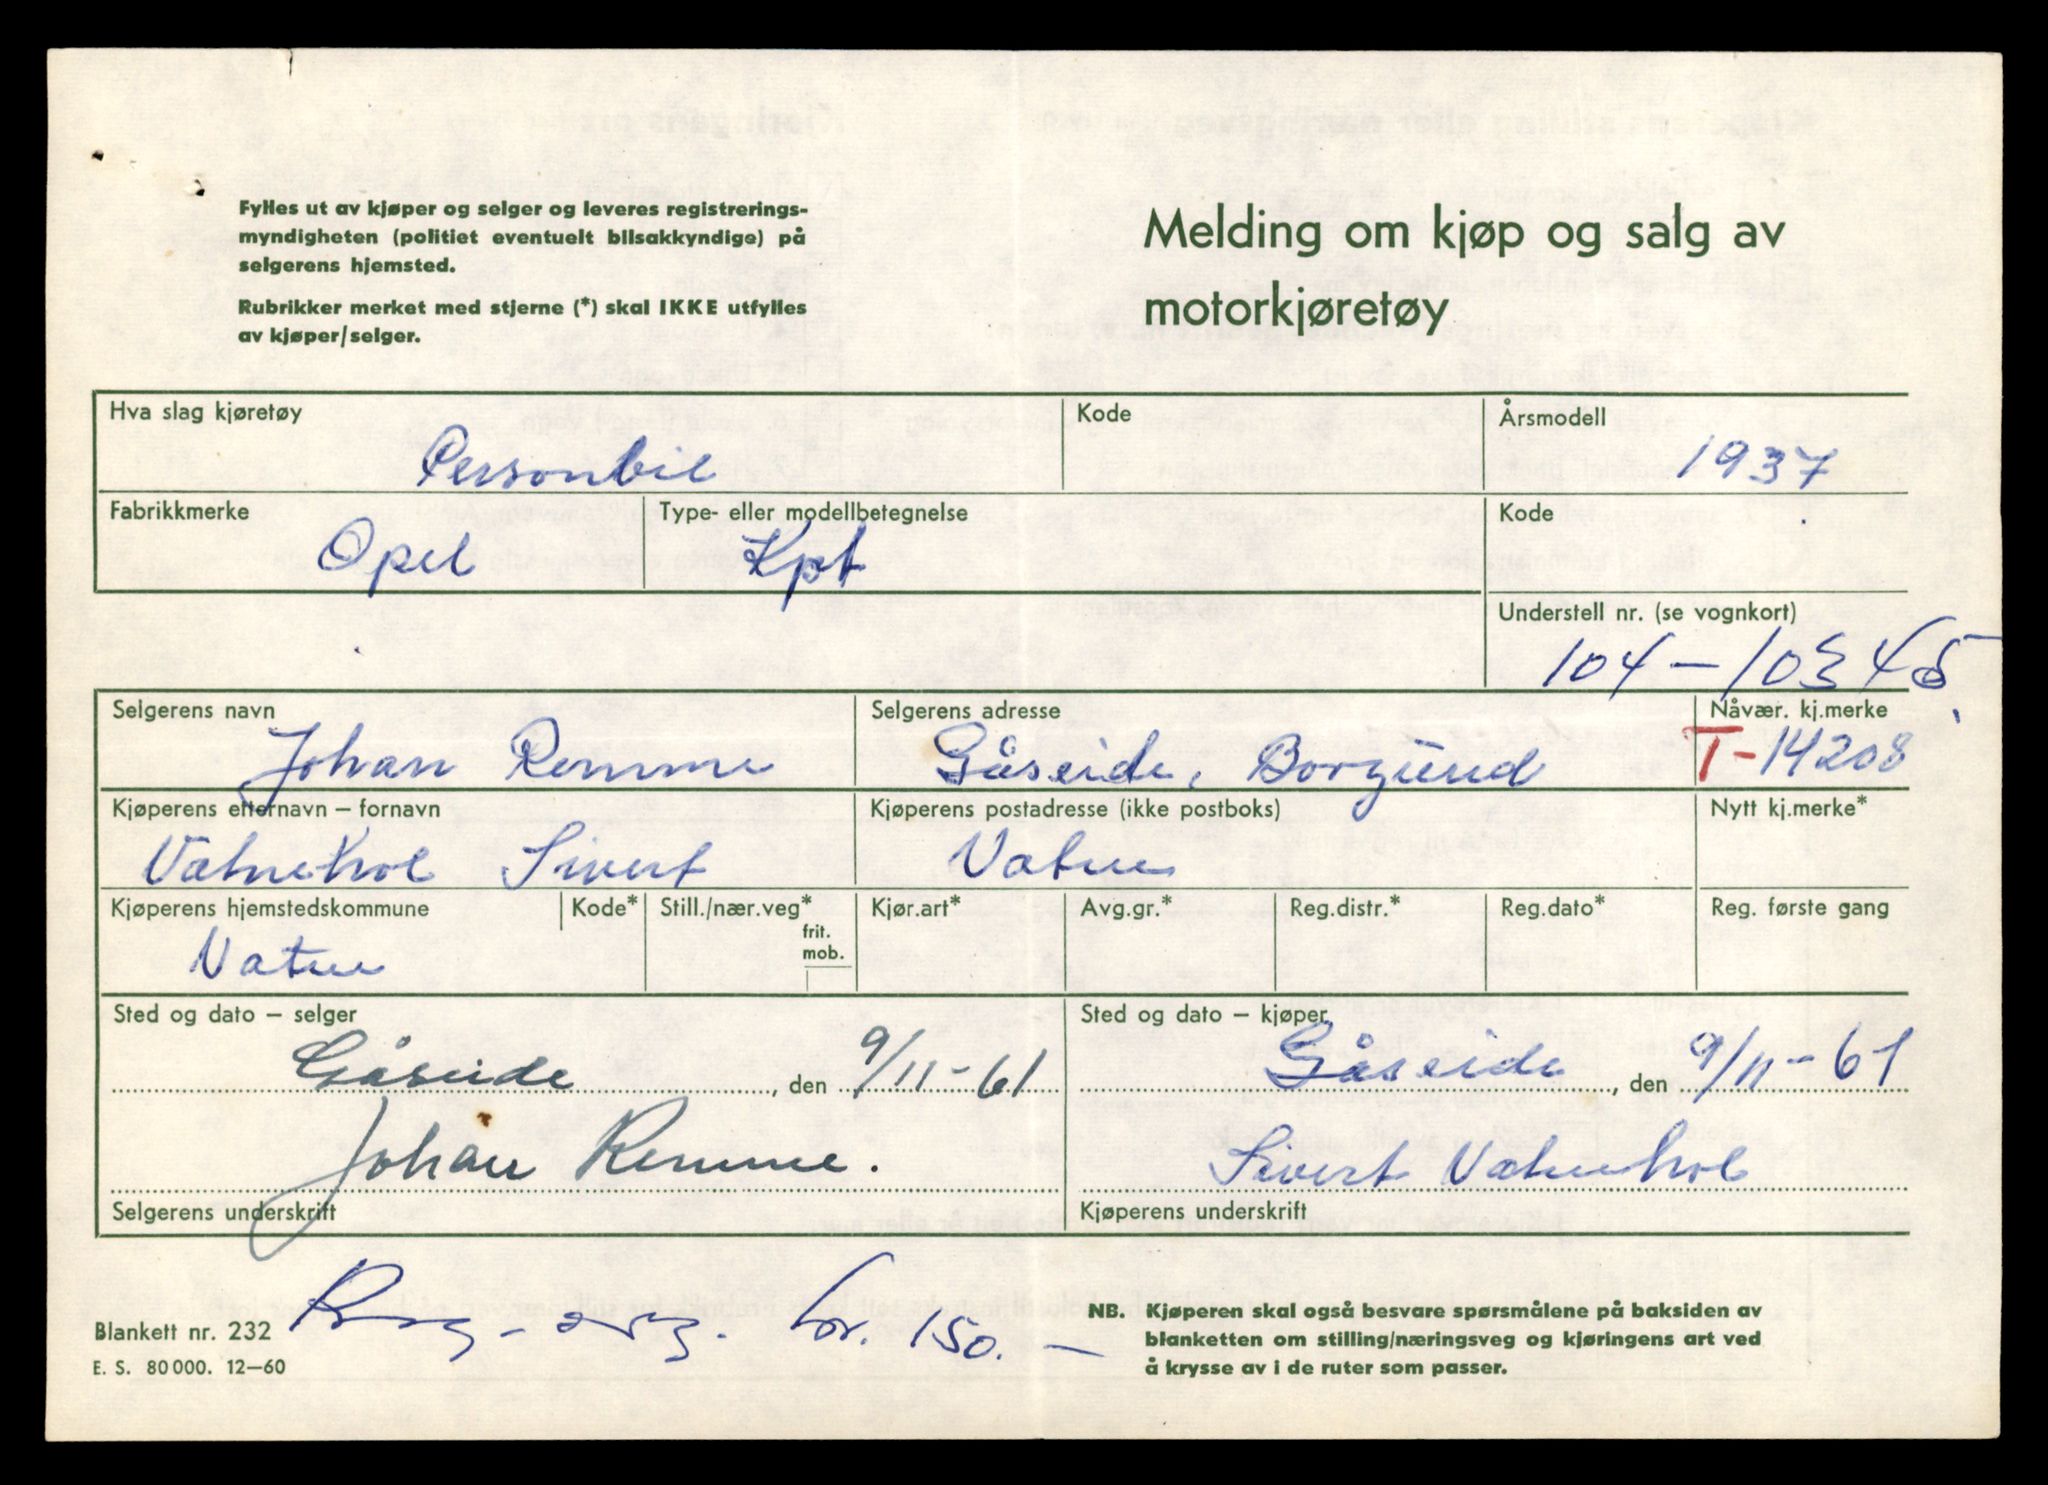 Fylles ut av kjøper og selger og leveres registrerings-
myndigheten (politiet eventuelt bilsakkyndige) på
selgerens hjemsted.
Rubrikker merket med stjerne (*) skal IKKE utfylles
av kjøper/selger.
Melding om kjøp og salg av
motorkjøretøy
Hva slag kjøretøy Kode Årsmodell
Personbil 1937
Fabrikkmerke Type- eller modellbetegnelse Kode
Opel Kpt
Understell nr. (se vognkort)
104-10345
Selgerens navn Selgerens adresse Nåvær. kj.merke
Johan Remme Gåseide, Borgund T-14208
Kjøperens etternavn – fornavn Kjøperens postadresse (ikke postboks) Nytt kj.merke*
Vatnehol Sivert Vatne
Kjøperens hjemstedskommune Kode* Still./nær.veg* Kjør.art* Avg.gr.* Reg.distr.* Reg.dato* Reg. første gang
frit.
mob.
Vatne
Sted og dato – selger Sted og dato – kjøper
Gåseide, den 9/11-61 Gåseide, den 9/11-61
Johan Remme. Sivert Vatnehol
Selgerens underskrift Kjøperens underskrift
kr. 150.-
Blankett nr. 232
E. S. 80 000. 12–60
NB. Kjøperen skal også besvare spørsmålene på baksiden av
blanketten om stilling/næringsveg og kjøringens art ved
å krysse av i de ruter som passer.